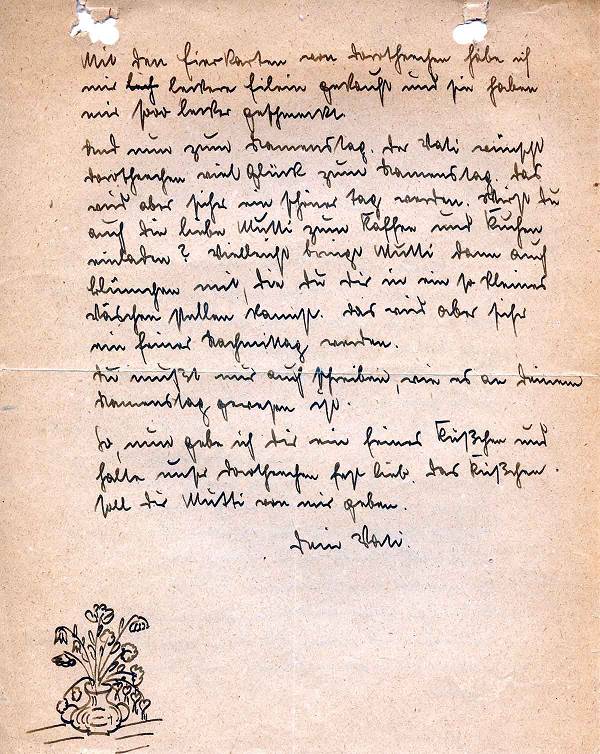 Mit den Eierkarten von Dorotheechen habe ich
mir lecker Eilein gekauft und sie haben
mir sooo lecker geschmeckt.
Und nun zum Namenstag. Der Vati wünscht
Dorotheechen viel Glück zum Namenstag. Das
wird aber sicher ein schöner Tag werden. Wirst Du
auch die liebe Mutti zum Kaffee und Kuchen
einladen? Vielleicht bringt Mutti dann auch
Blümchen mit, die Du Dir in ein so kleines
Väschen stellen kannst. Das wird aber sicher
ein feiner Nachmittag werden.
Du mußt mir auch schreiben, wie es an Deinem
Namenstag gewesen ist.
So, nun gebe ich Dir ein feines Küßchen und
halte unser Dorotheechen fest lieb. Das Küßchen
soll Dir Mutti von mir geben.
Dein Vati.